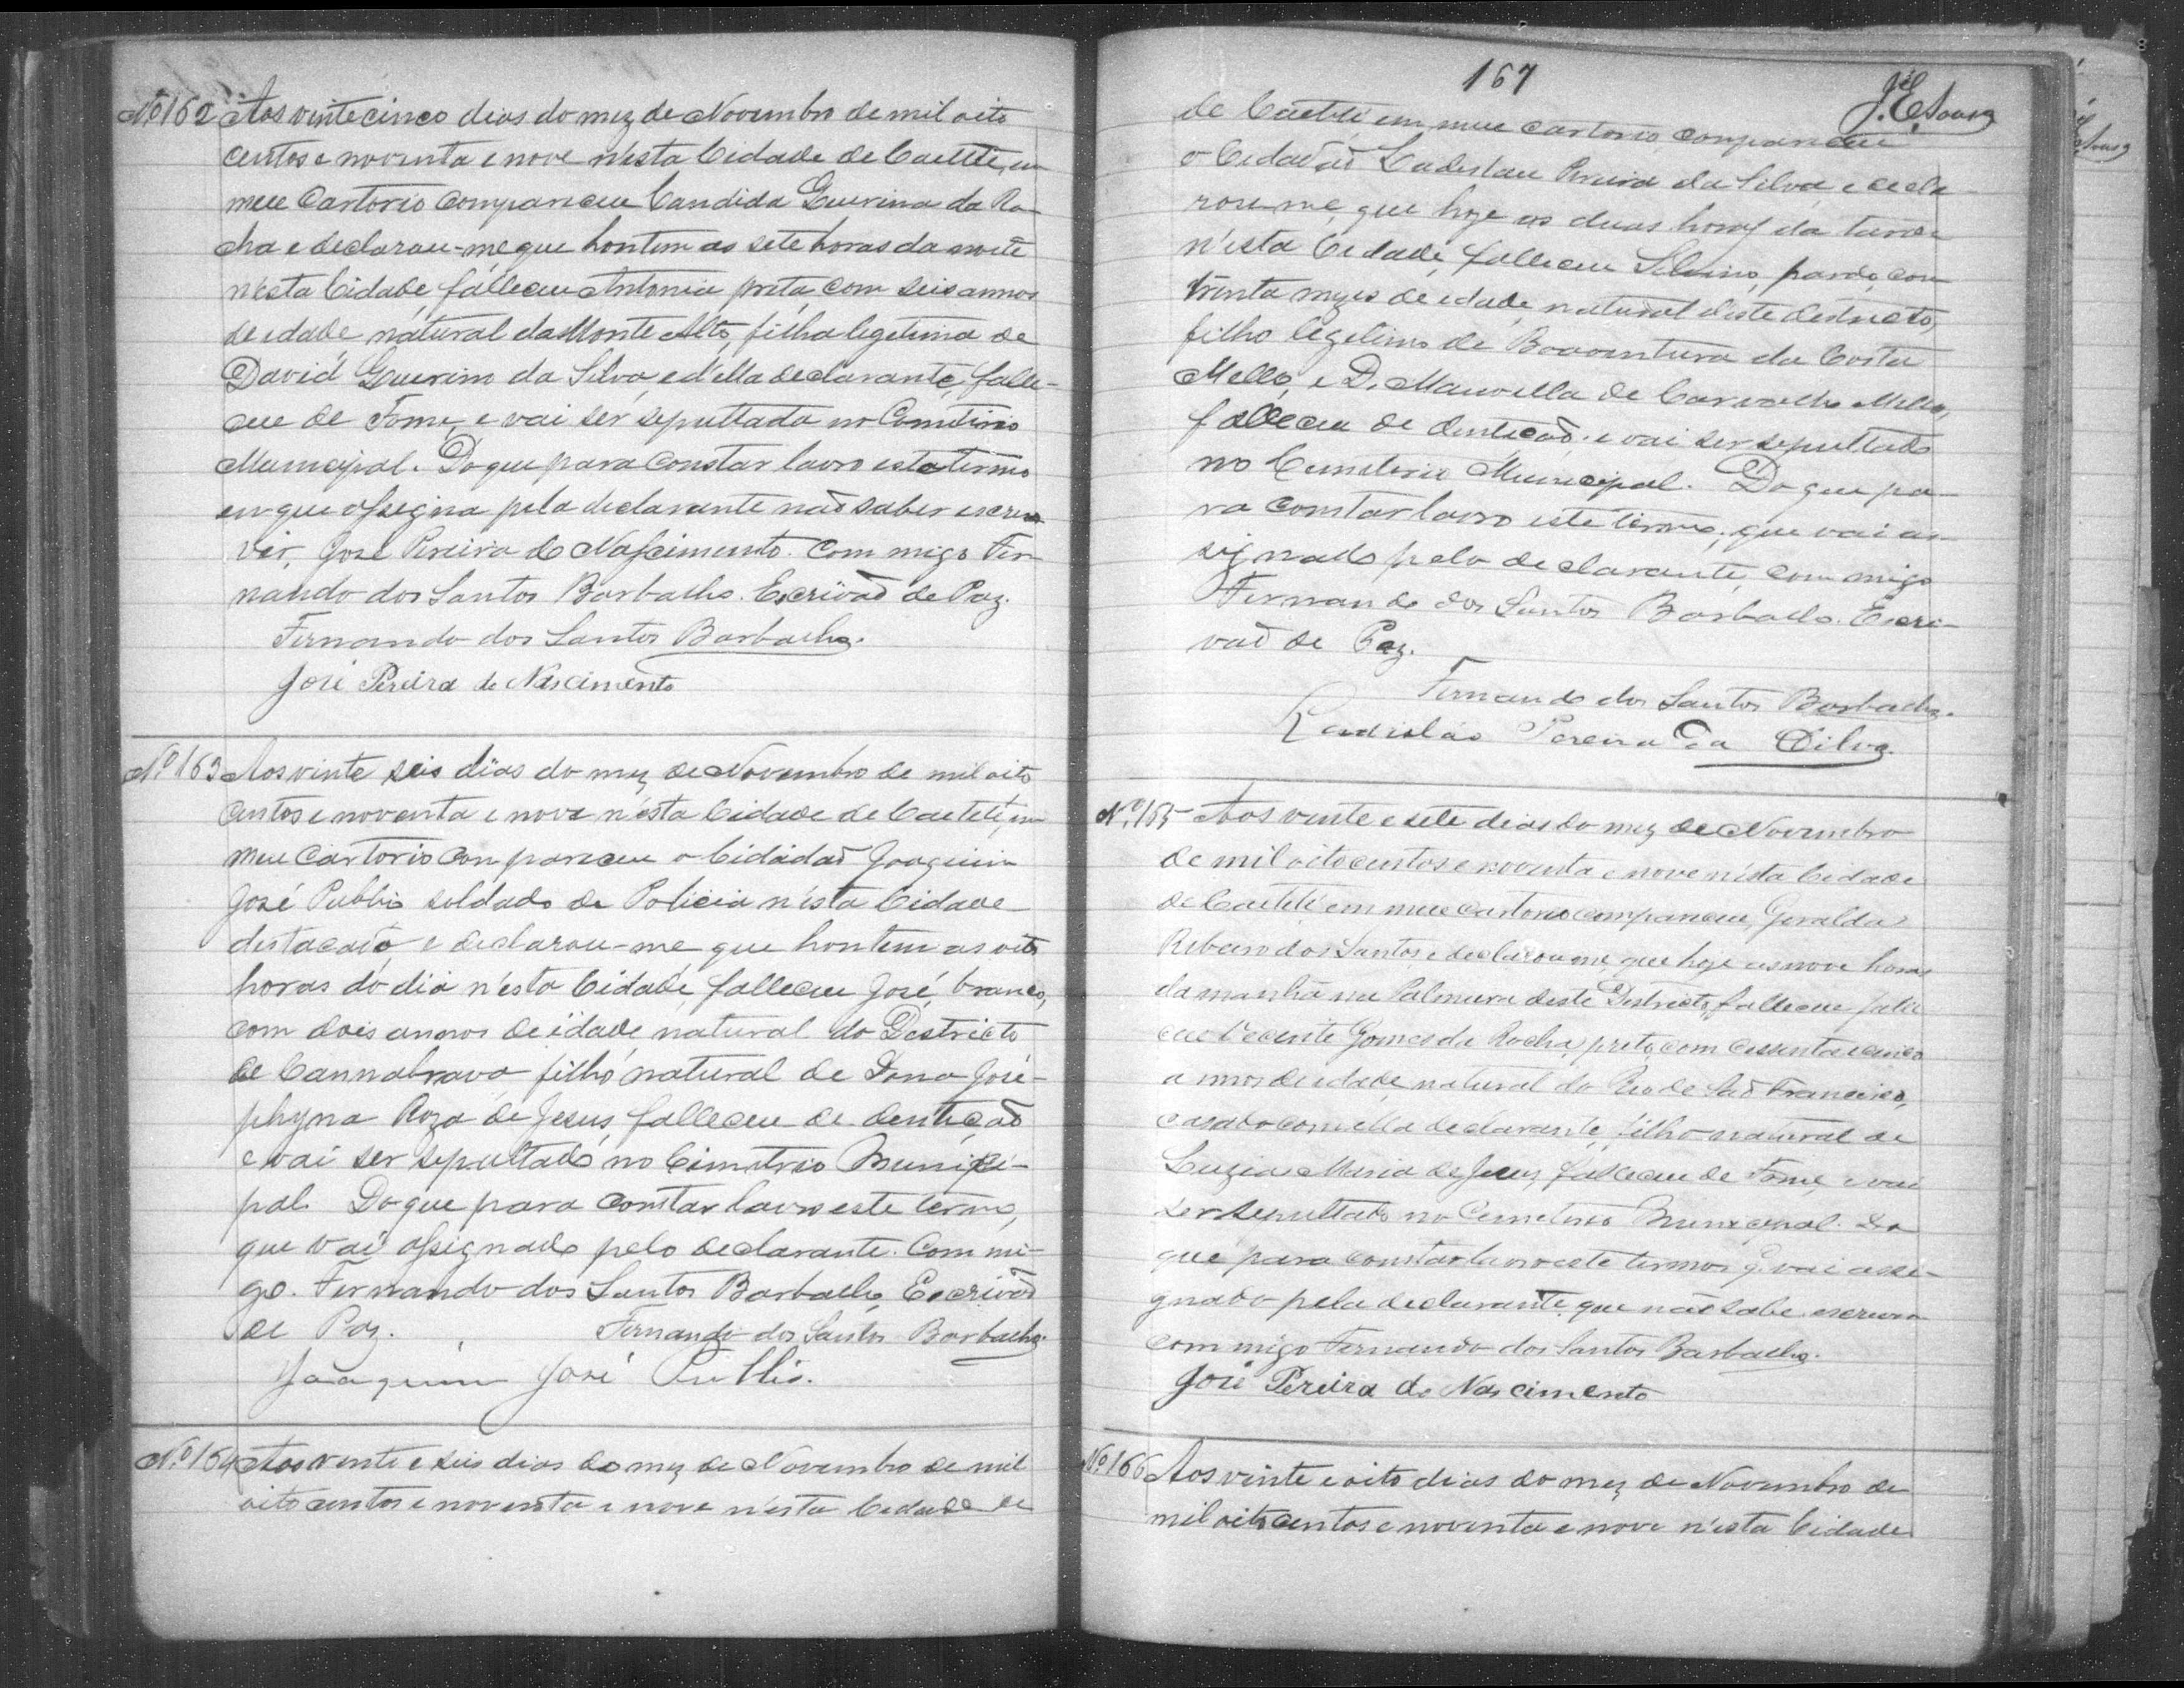 Nº 162 Aos vinte cinco dias do mez de Novembro de mil oito
centos e noventa e nove n'esta Cidade de Caetité, em
meu Cartorio compareceu Candida Guerina da Ro-
cha e declarou-me que hontem as sete horas da noite
n'esta Cidade, falleceu Antonia preta, com seis annos
de edade, natural de Monte Alto, filha legitima de
David Guerino da Silva, e d'ella declarante, falle-
ceu de Fome, e vai ser sepultada no Cemiterio
Municipal. Do que para constar lavro este termo
em que assigna pela declarante não saber escre
ver, José Pereira do Nascimento. Com migo Fer
nando dos Santos Barbalho. Escrivaõ de Paz.
Fernando dos Santos Barbalho.
José Pereira do Nascimento
Nº 163 Aos vinte seis dias do mez de Novembro de mil oito
centos e noventa e nove n'esta Cidade de Caetité, em
meu Cartorio compareceu o Cidadaõ Joaquim
José Publio soldado de Policia n'esta Cidade
destacado, e declarou-me que hontem as oito
horas do dia n'esta Cidade, falleceu José, branco,
com dois annos de idade, natural do Destricto
de Cannabrava filho natural de Dona José-
phyna Roza de Jesus, falleceu de dentiçaõ
e vai ser sepultado no Cimiterio Munici-
pal. Do que para constar lavro este termo,
que vai assignado pelo declarante. Com mi-
go. Fernando dos Santos Barbalho, Escrivaõ
de Paz. Fernando dos Santos Barbalho.
Joaquim José Publio.
Nº 164 Aos vinte e seis dias do mez de Novembro de mil
oito centos e noventa e nove n'esta Cidade de
167
J. E. Souza
de Caetité em meu cartorio compareceu
o Cidadaõ Ladislau Pereira da Silva, e decla-
rou-me, que hoje as duas horas da tarde
n'esta Cidade, falleceu Silvino, pardo, com
trinta mezes de edade, natural deste destricto,
filho legitimo de Boaventura da Costa
Mello, e D. Manoella de Carvalho Mello,
falleceu de dentiçaõ, e vai ser sepultado
no Cemiterio Municipal. Do que pa-
ra constar lavro este termo, que vai as-
signado pelo declarante, com migo
Fernando dos Santos Barbalho. Escri-
vaõ de Paz.
Fernando dos Santos Barbalho.
Ladisláo Pereira da Silva.
Nº 165 Aos vinte e sete dias do mez de Novembro
de mil oitocentos e noventa e nove n'esta Cidade
de Caetité em meu cartorio compareceu, Geralda
Ribeiro dos Santos, e declarou me, que hoje as nove horas
da manhã na Palmeira deste Destricto, falleceu
Vecente Gomes da Rocha, preto, com cessenta e cinco
annos de edade, natural do Rio de Saõ Francisco,
casado com ella declarante, filho natural de
Luzia Maria de Jesus, falleceu de Fome, e vai
ser sepultado no Cemeterio Municepal. Do
que para constar lavro este termo, q. vai assi-
gnado pela declarante, que não sabe escrever
com migo Fernando dos Santos Barbalho.
José Pereira do Nascimento
Nº 166 Aos vinte e oito dias do mez de Novembro de
mil oito centos e noventa e nove n'esta Cidade